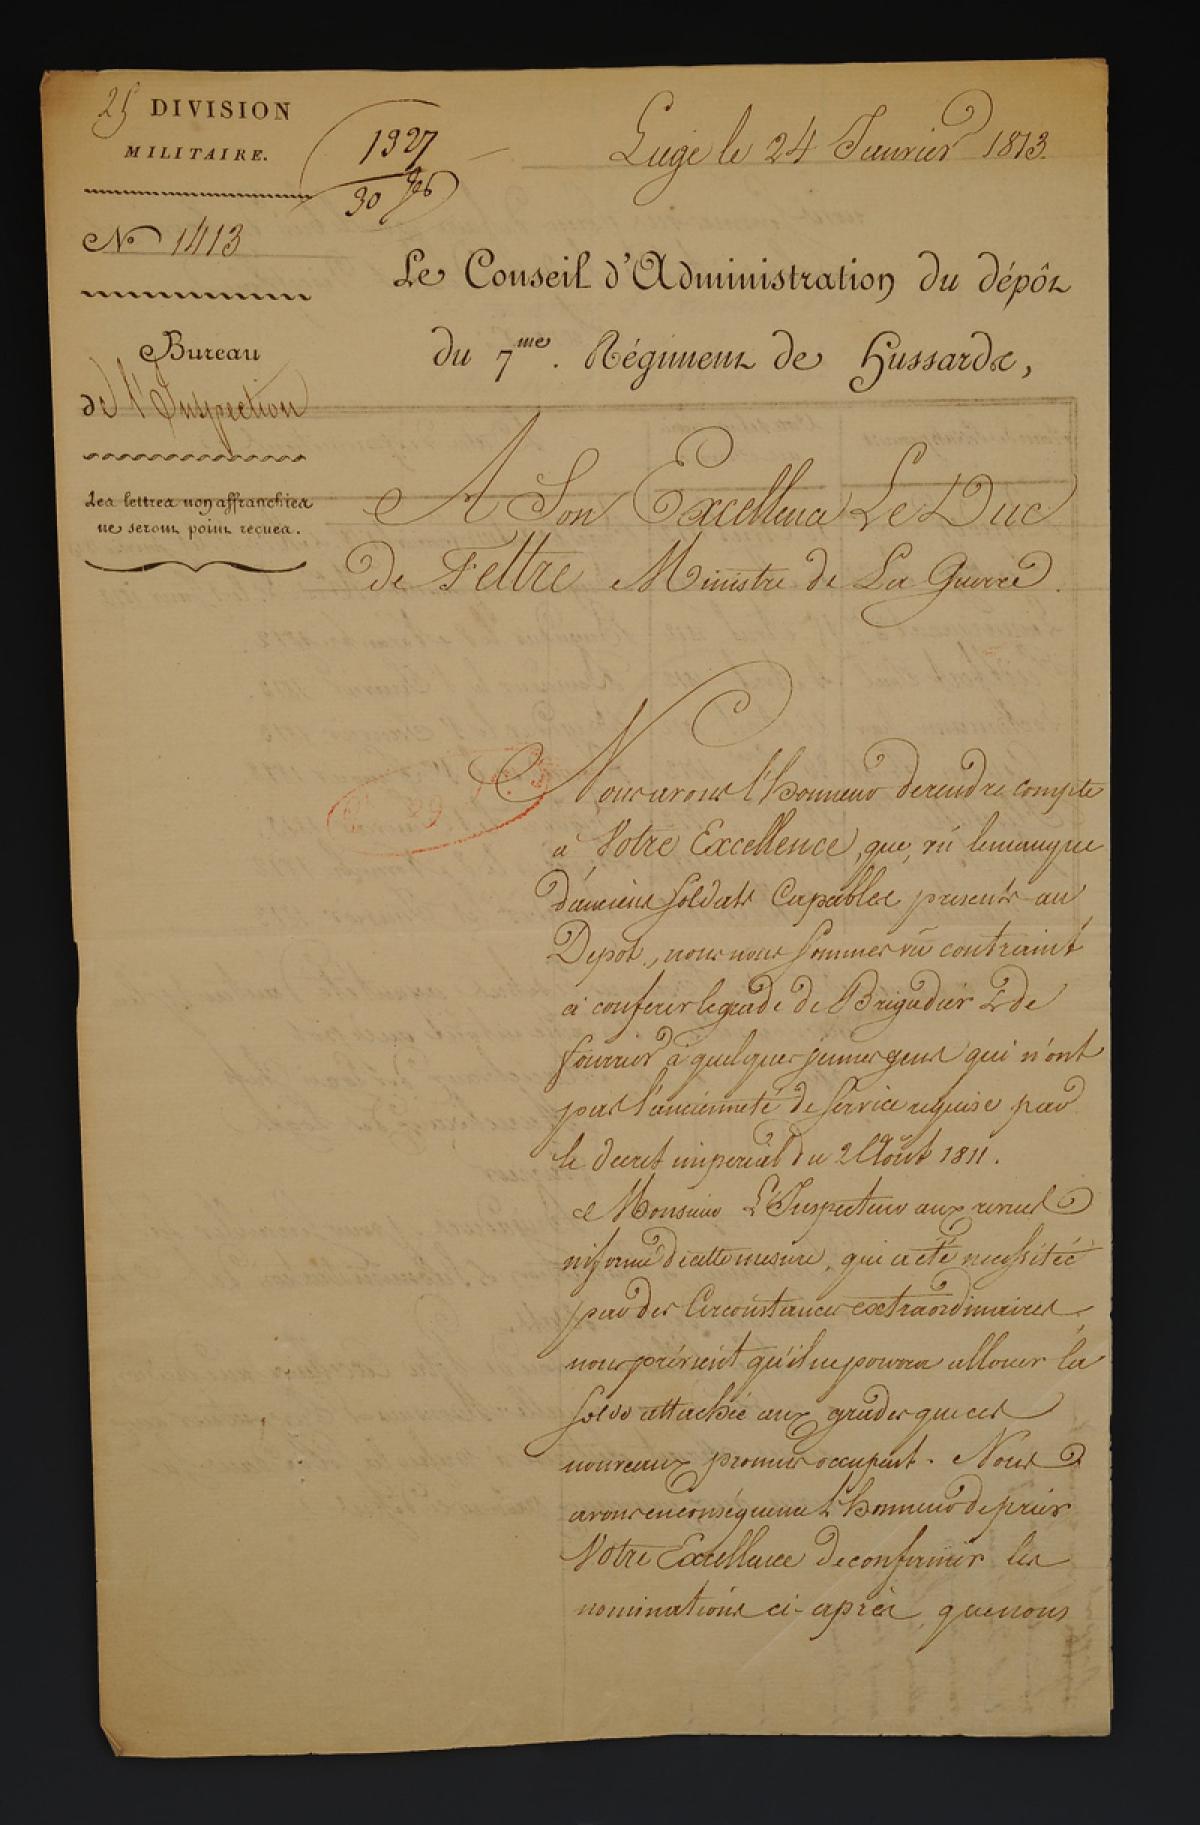 25 DIVISION
MILITAIRE.
1327
30 Jer
Liege le 24 Janvier 1813.
No 1413
Le Conseil d'Administration du dépôt
du 7me. Régiment de Hussards,
Bureau
de l'Inspection
Les lettres non affranchies
ne seront point reçues.
A Son Excellence Le Duc
De Feltre Ministre de La Guerre.
29
Nous avons l'honneur de rendre compte
a Votre Excellence, que, vû le manque
d'anciens Soldats Capables presents au
Depot, nous nous sommes vû contraint
a conferer le grade de Brigadier & de
fourrier à quelques jeunes gens qui n'ont
pas l'ancienneté de Service requise par
le decret imperial du 2 Août 1811.
Monsieur L'Inspecteur aux revues
informé de cette mesure, qui a été necessitée
par des Circonstances extraordinaires,
nous prévient qu'il ne pourra allouer la
solde attachée aux grades que ces
nouveaux promus occupent. Nous
avons en conséquence l'honneur de prier
Votre Excellence de confirmer les
nominations ci-après, que nous